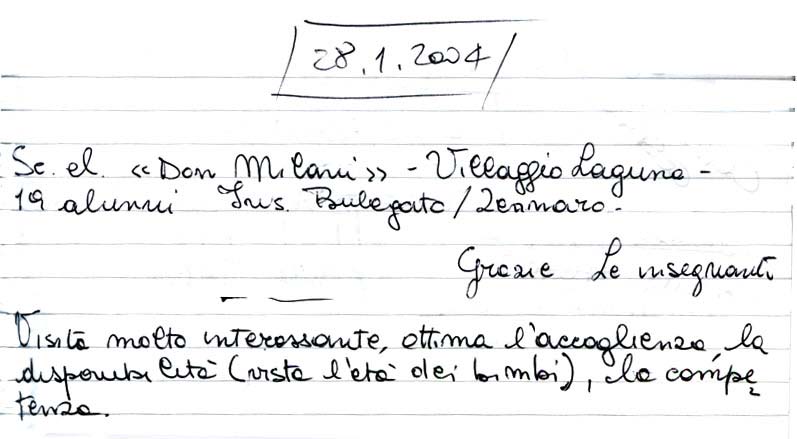 28.1.2004
Sc. el. «Don Milani» - Villaggio Laguna -
19 alunni Ins. Bulegato / Zennaro -
Grazie Le insegnanti
Visita molto interessante, ottima l'accoglienza, la
disponibilità (vista l'età dei bimbi), la compe=
tenza.